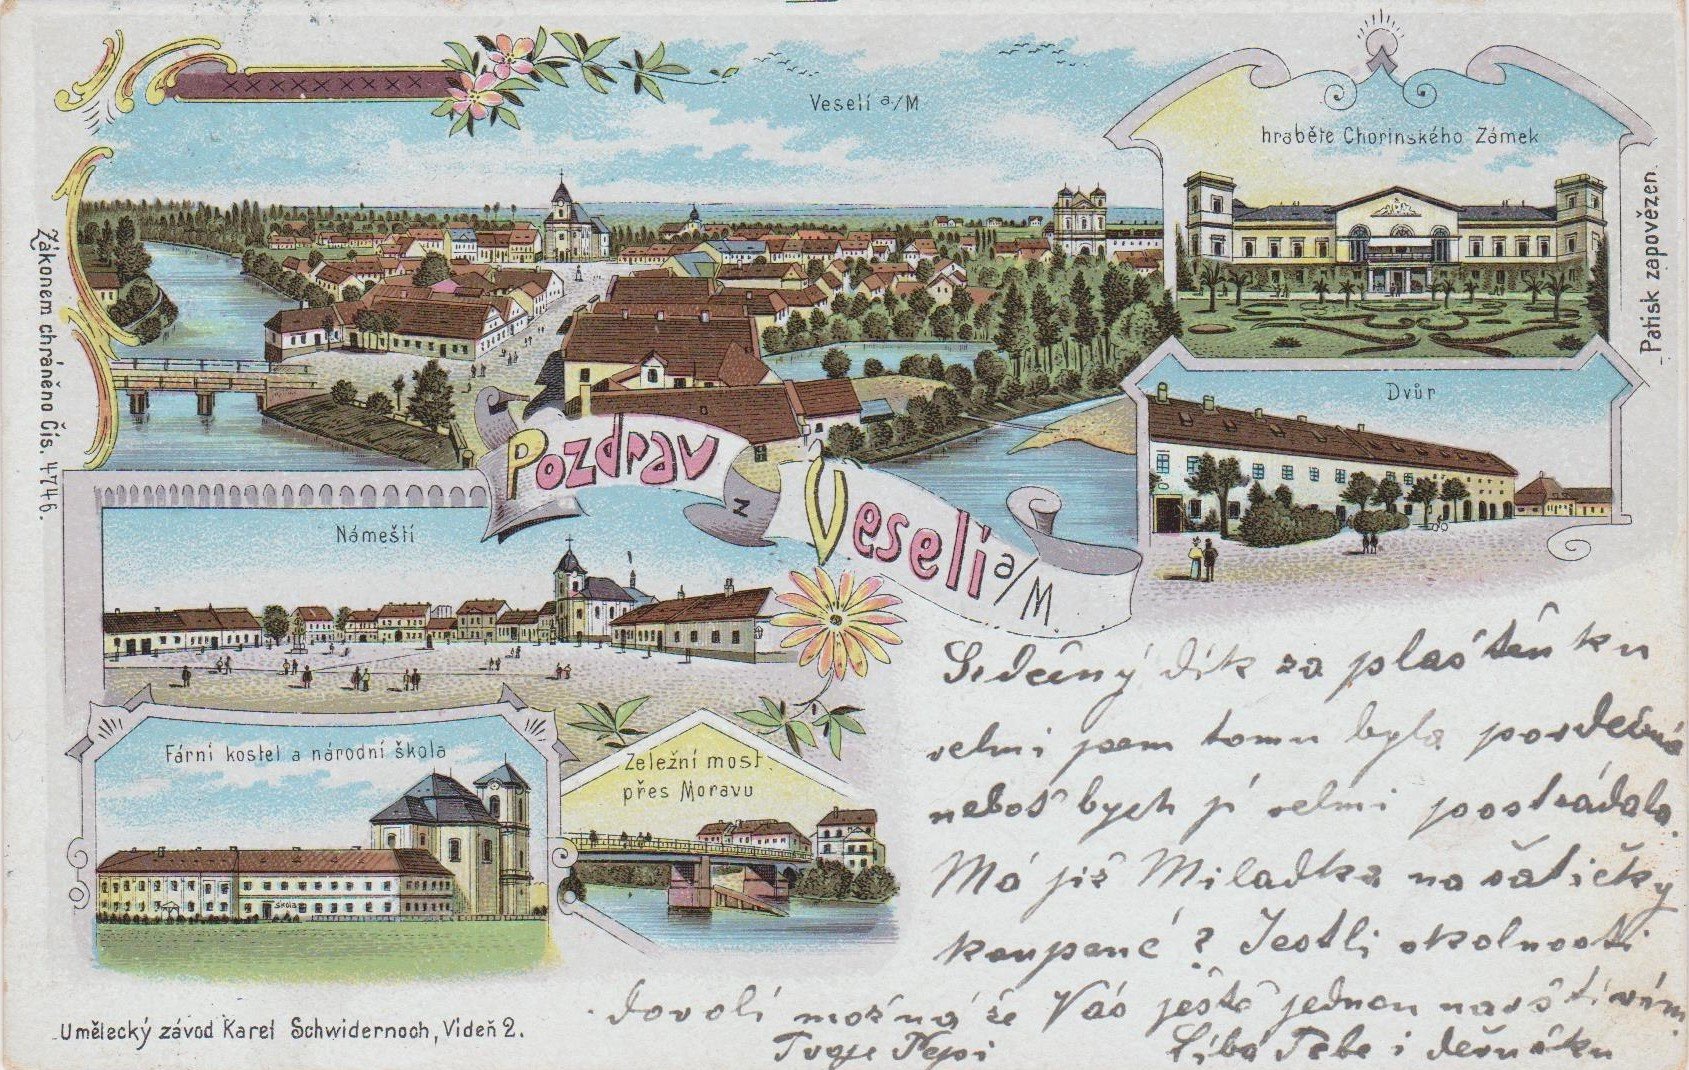 Veselí a/M
hraběte Chorinského Zámek
Patisk zapovězen.
Zákonem chráněno Čis. 4746.
Dvůr
Pozdrav
z
Veselí a/M.
Náměstí
Fární kostel a národní škola
škola
Zeležní most
přes Moravu
Umělecký závod Karel Schwidernoch, Vídeň 2.
Srdečný dík za plaštěnku
velmi jsem tomu byla povděčná
neboť bych ji velmi postrádala.
Má již Miladka na šatičky
koupené? Jestli okolnosti
dovolí možná že Vás ještě jednou navštívím.
Tvoje Pepi
Líbá Tebe i